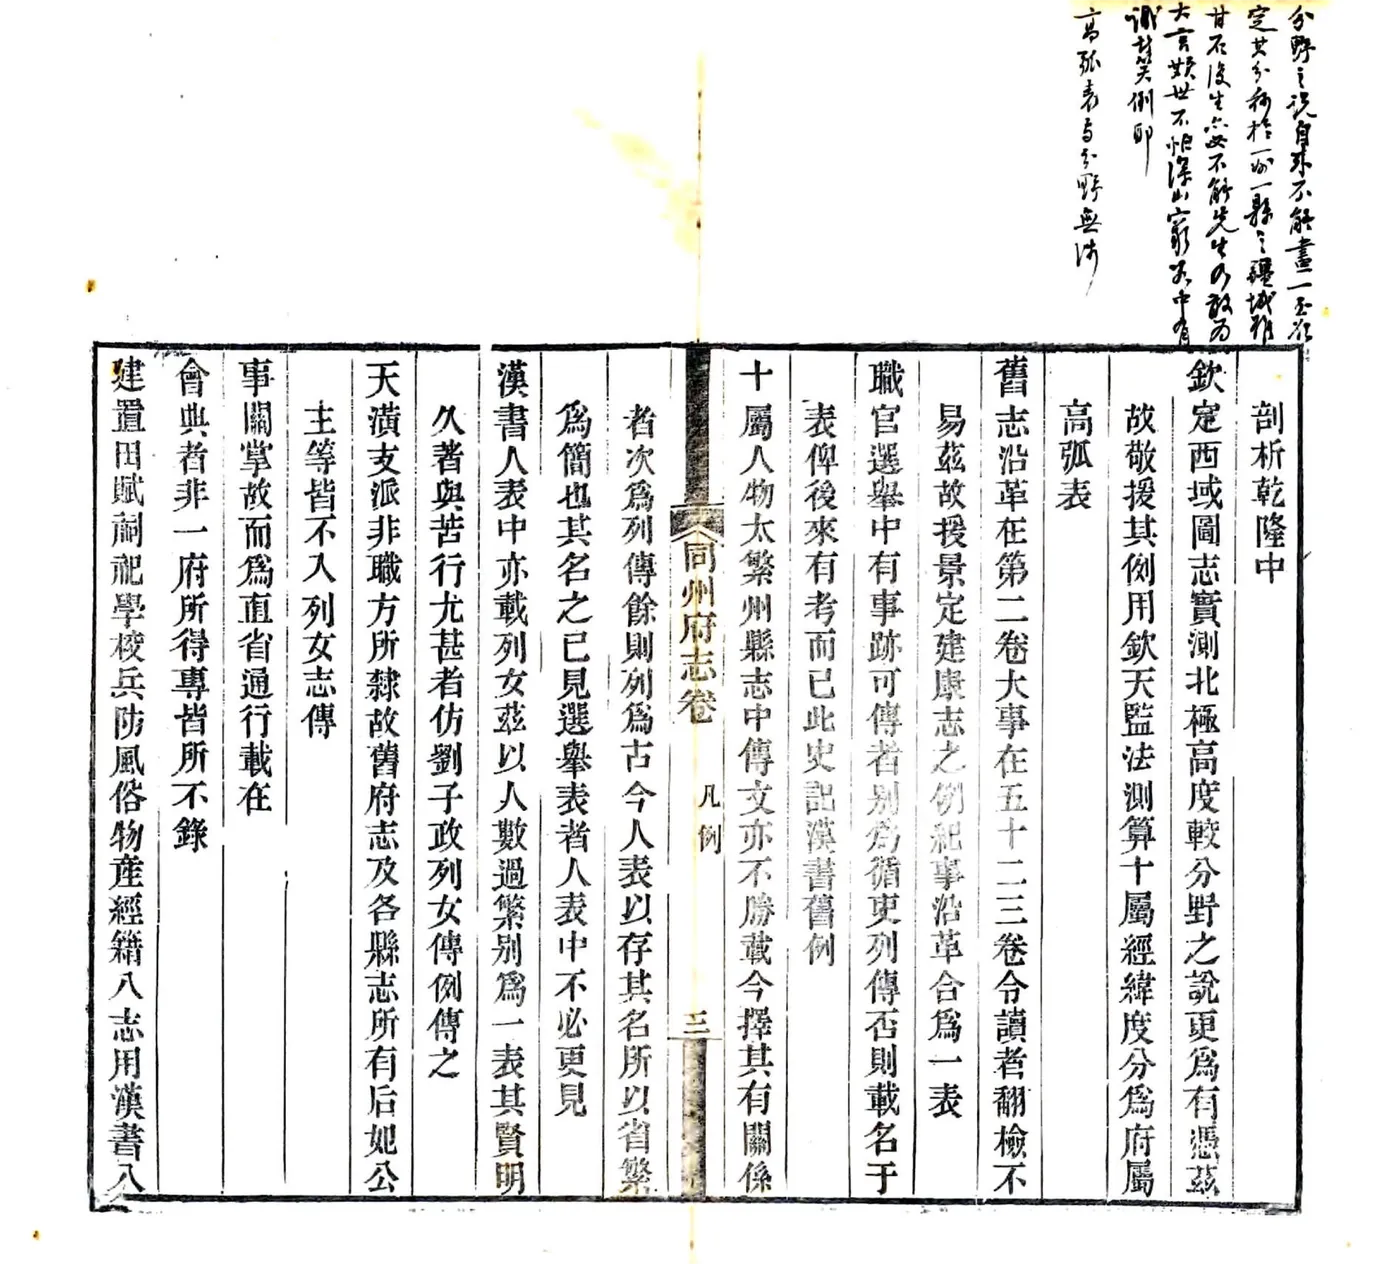 分野之說自來不能畫一至欲
定其分秒於一州一縣之疆域雖
甘石復生亦必不能先生乃敢為
大言欺世不怕深山窮谷中有
識者笑倒耶
高弧表與分野無涉
剖析乾隆中
欽定西域圖志實測北極高度較分野之說更爲有憑茲
故敬援其例用欽天監法測算十屬經緯度分爲府屬
高弧表
舊志沿革在第二卷大事在五十二三卷令讀者翻檢不
易茲故援景定建康志之例紀事沿革合爲一表
職官選舉中有事跡可傳者別爲循吏列傳否則載名于
表俾後來有考而已此史記漢書舊例
十屬人物太繁州縣志中傳文亦不勝載今擇其有關係
同州府志卷
凡例
三
者次爲列傳餘則列爲古今人表以存其名所以省繁
爲簡也其名之已見選舉表者人表中不必更見
漢書人表中亦載列女茲以人數過繁別爲一表其賢明
久著與苦行尤甚者仿劉子政列女傳例傳之
天潢支派非職方所隸故舊府志及各縣志所有后妃公
主等皆不入列女志傳
事關掌故而爲直省通行載在
會典者非一府所得專皆所不錄
建置田賦祠祀學校兵防風俗物産經籍八志用漢書八